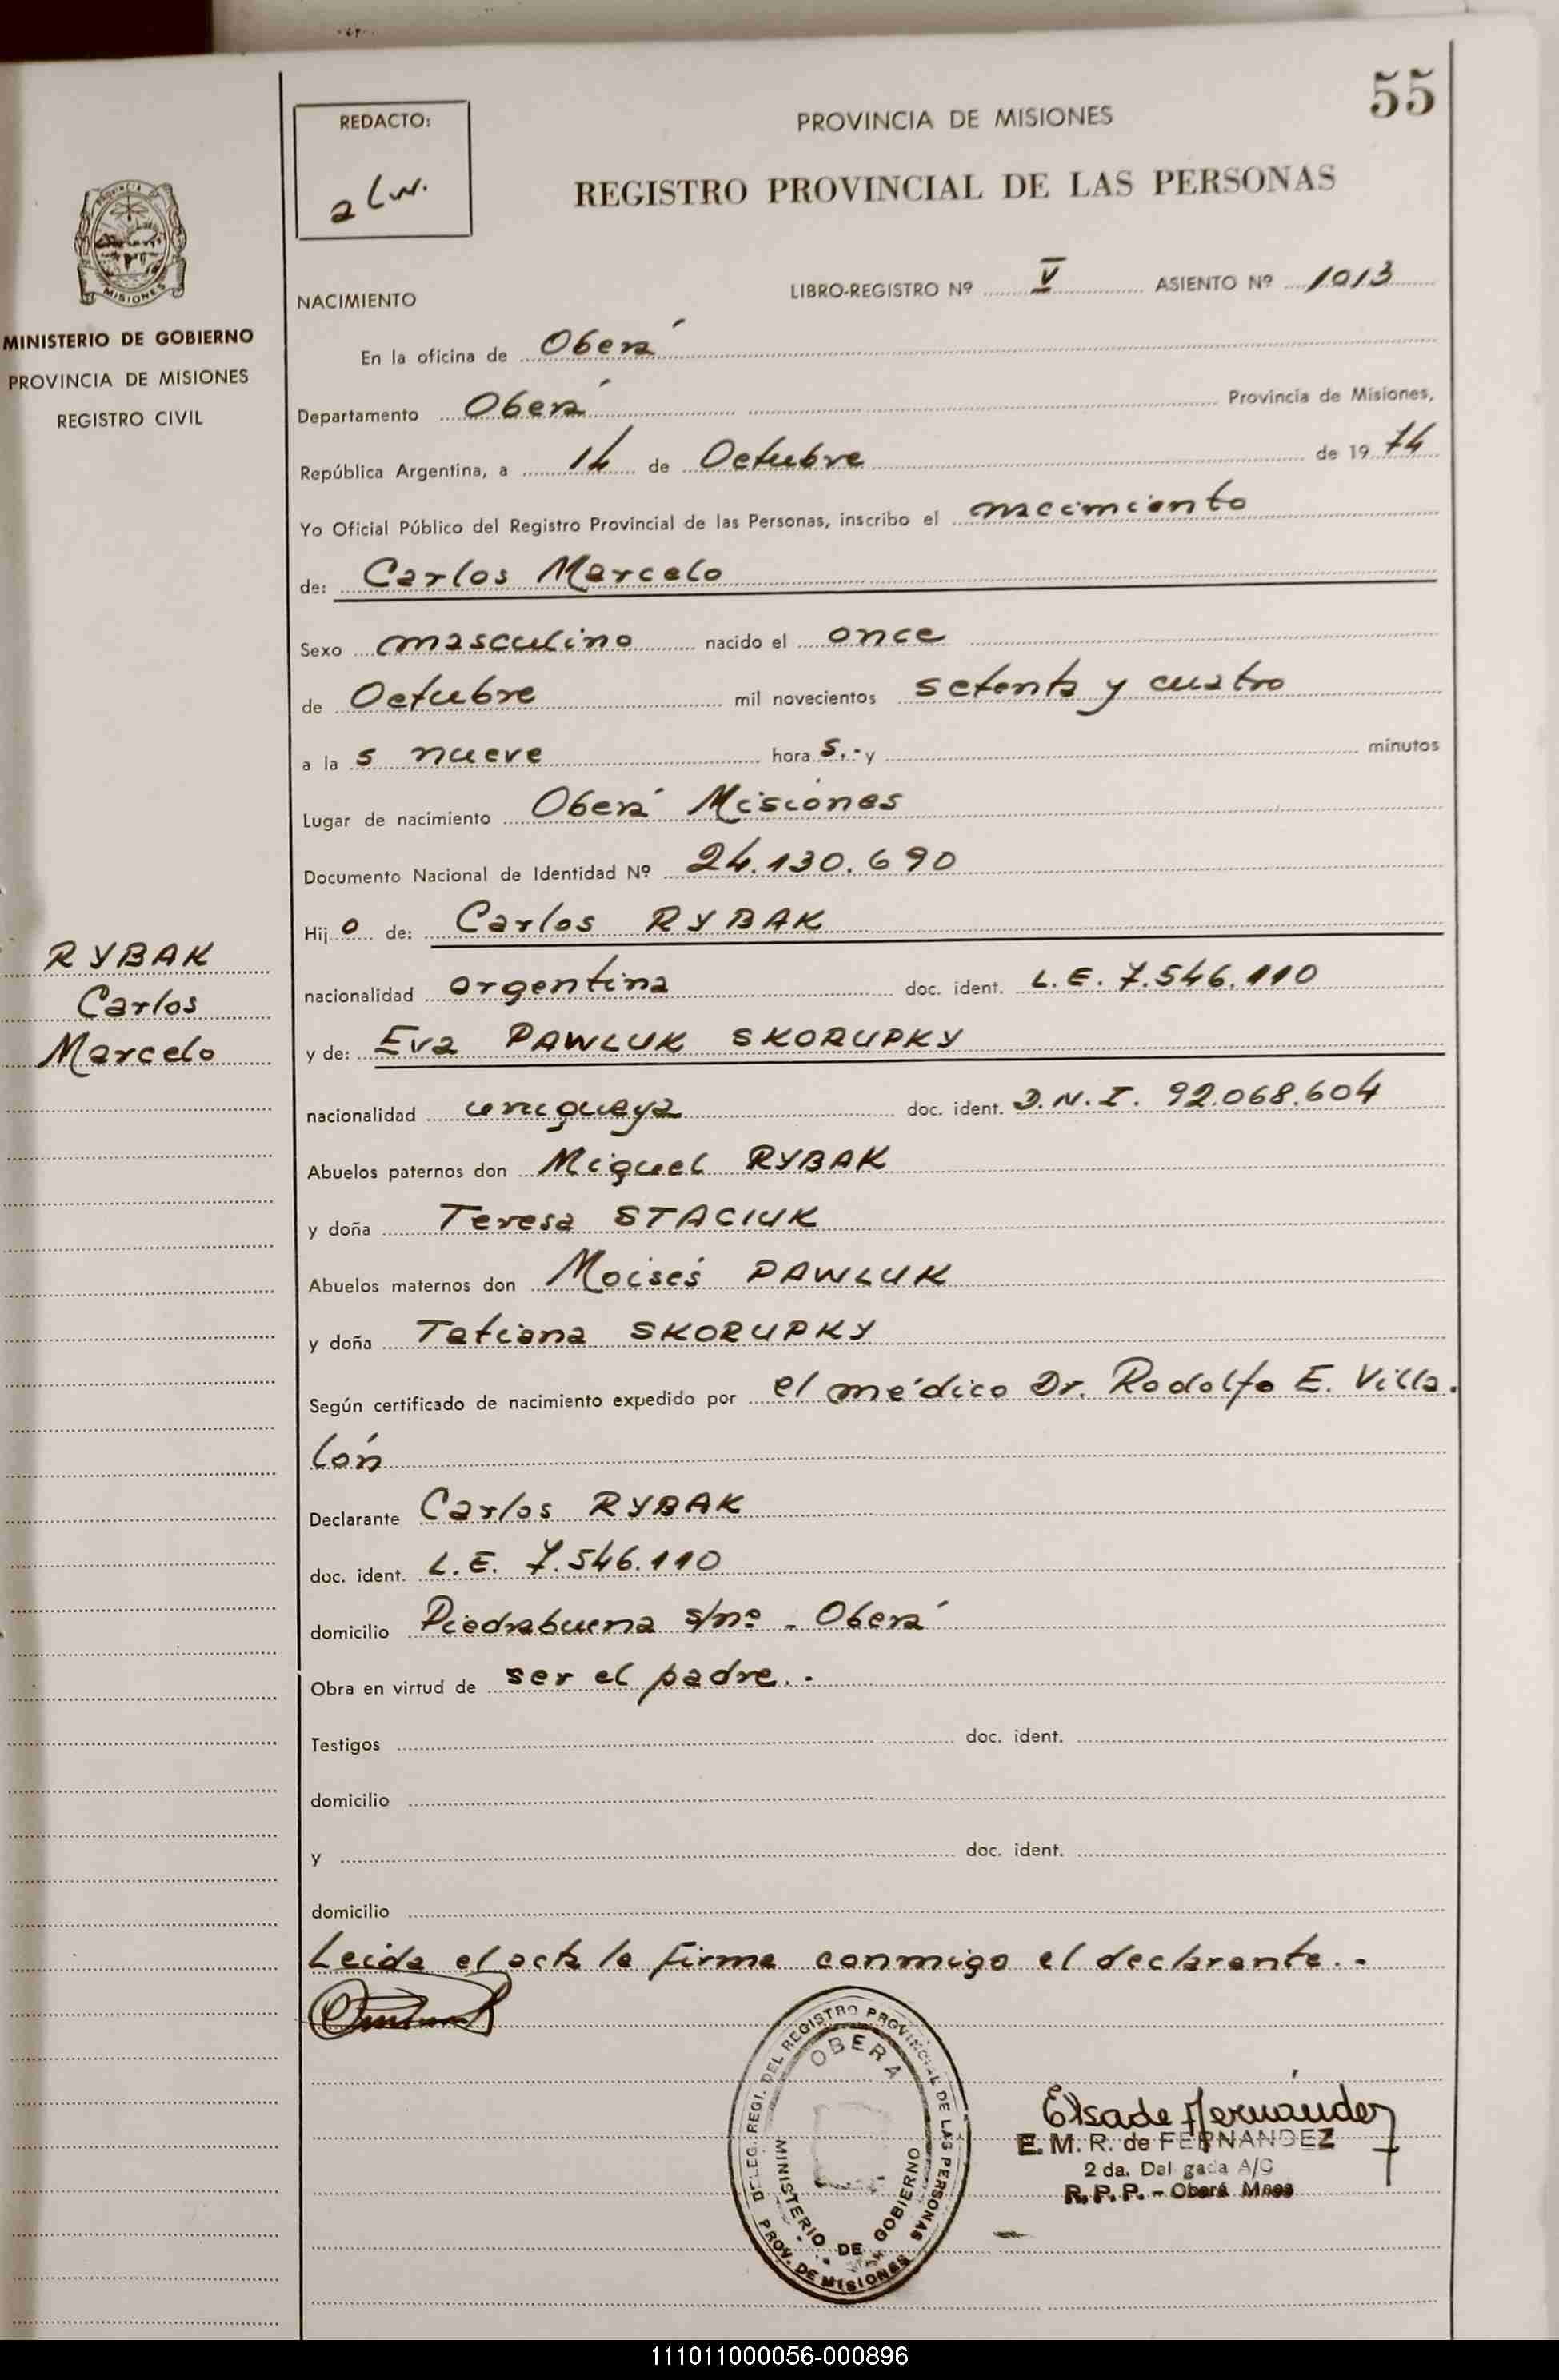 55
REDACTO:
PROVINCIA DE MISIONES
REGISTRO PROVINCIAL DE LAS PERSONAS
MISIONES
MINISTERIO DE GOBIERNO
PROVINCIA DE MISIONES
REGISTRO CIVIL
NACIMIENTO
LIBRO-REGISTRO Nº V ASIENTO Nº 1013
En la oficina de Oberá
Departamento Oberá Provincia de Misiones,
República Argentina, a 14 de Octubre de 1974
Yo Oficial Público del Registro Provincial de las Personas, inscribo el nacimiento
de: Carlos Marcelo
Sexo masculino nacido el once
de Octubre mil novecientos setenta y cuatro
a las nueve horas.- y minutos
Lugar de nacimiento Oberá Misiones
Documento Nacional de Identidad Nº 24.130.690
Hijo de: Carlos RYBAK
RYBAK
Carlos
Marcelo
nacionalidad argentina doc. ident. L.E. 7.546.110
y de: Eva PAWLUK SKORUPKY
nacionalidad uruguaya doc. ident. D.N.I. 92.068.604
Abuelos paternos don Miguel RYBAK
y doña Teresa STACIUK
Abuelos maternos don Moisés PAWLUK
y doña Tatiana SKORUPKY
Según certificado de nacimiento expedido por el médico Dr. Rodolfo E. Villa-
lón
Declarante Carlos RYBAK
doc. ident. L.E. 7.546.110
domicilio Piedrabuena s/nº - Oberá
Obra en virtud de ser el padre.-
Testigos doc. ident.
domicilio
y doc. ident.
domicilio
Leida el acta la firma conmigo el declarante.-
DELEG. REGI. DEL REGISTRO PROVINCIAL DE LAS PERSONAS
OBERA
MINISTERIO DE GOBIERNO
PROV. DE MISIONES
Elsa de Fernández
E. M. R. de FERNANDEZ
2 da. Delegada A/C
R. P. P. - Oberá Mnes
111011000056-000896